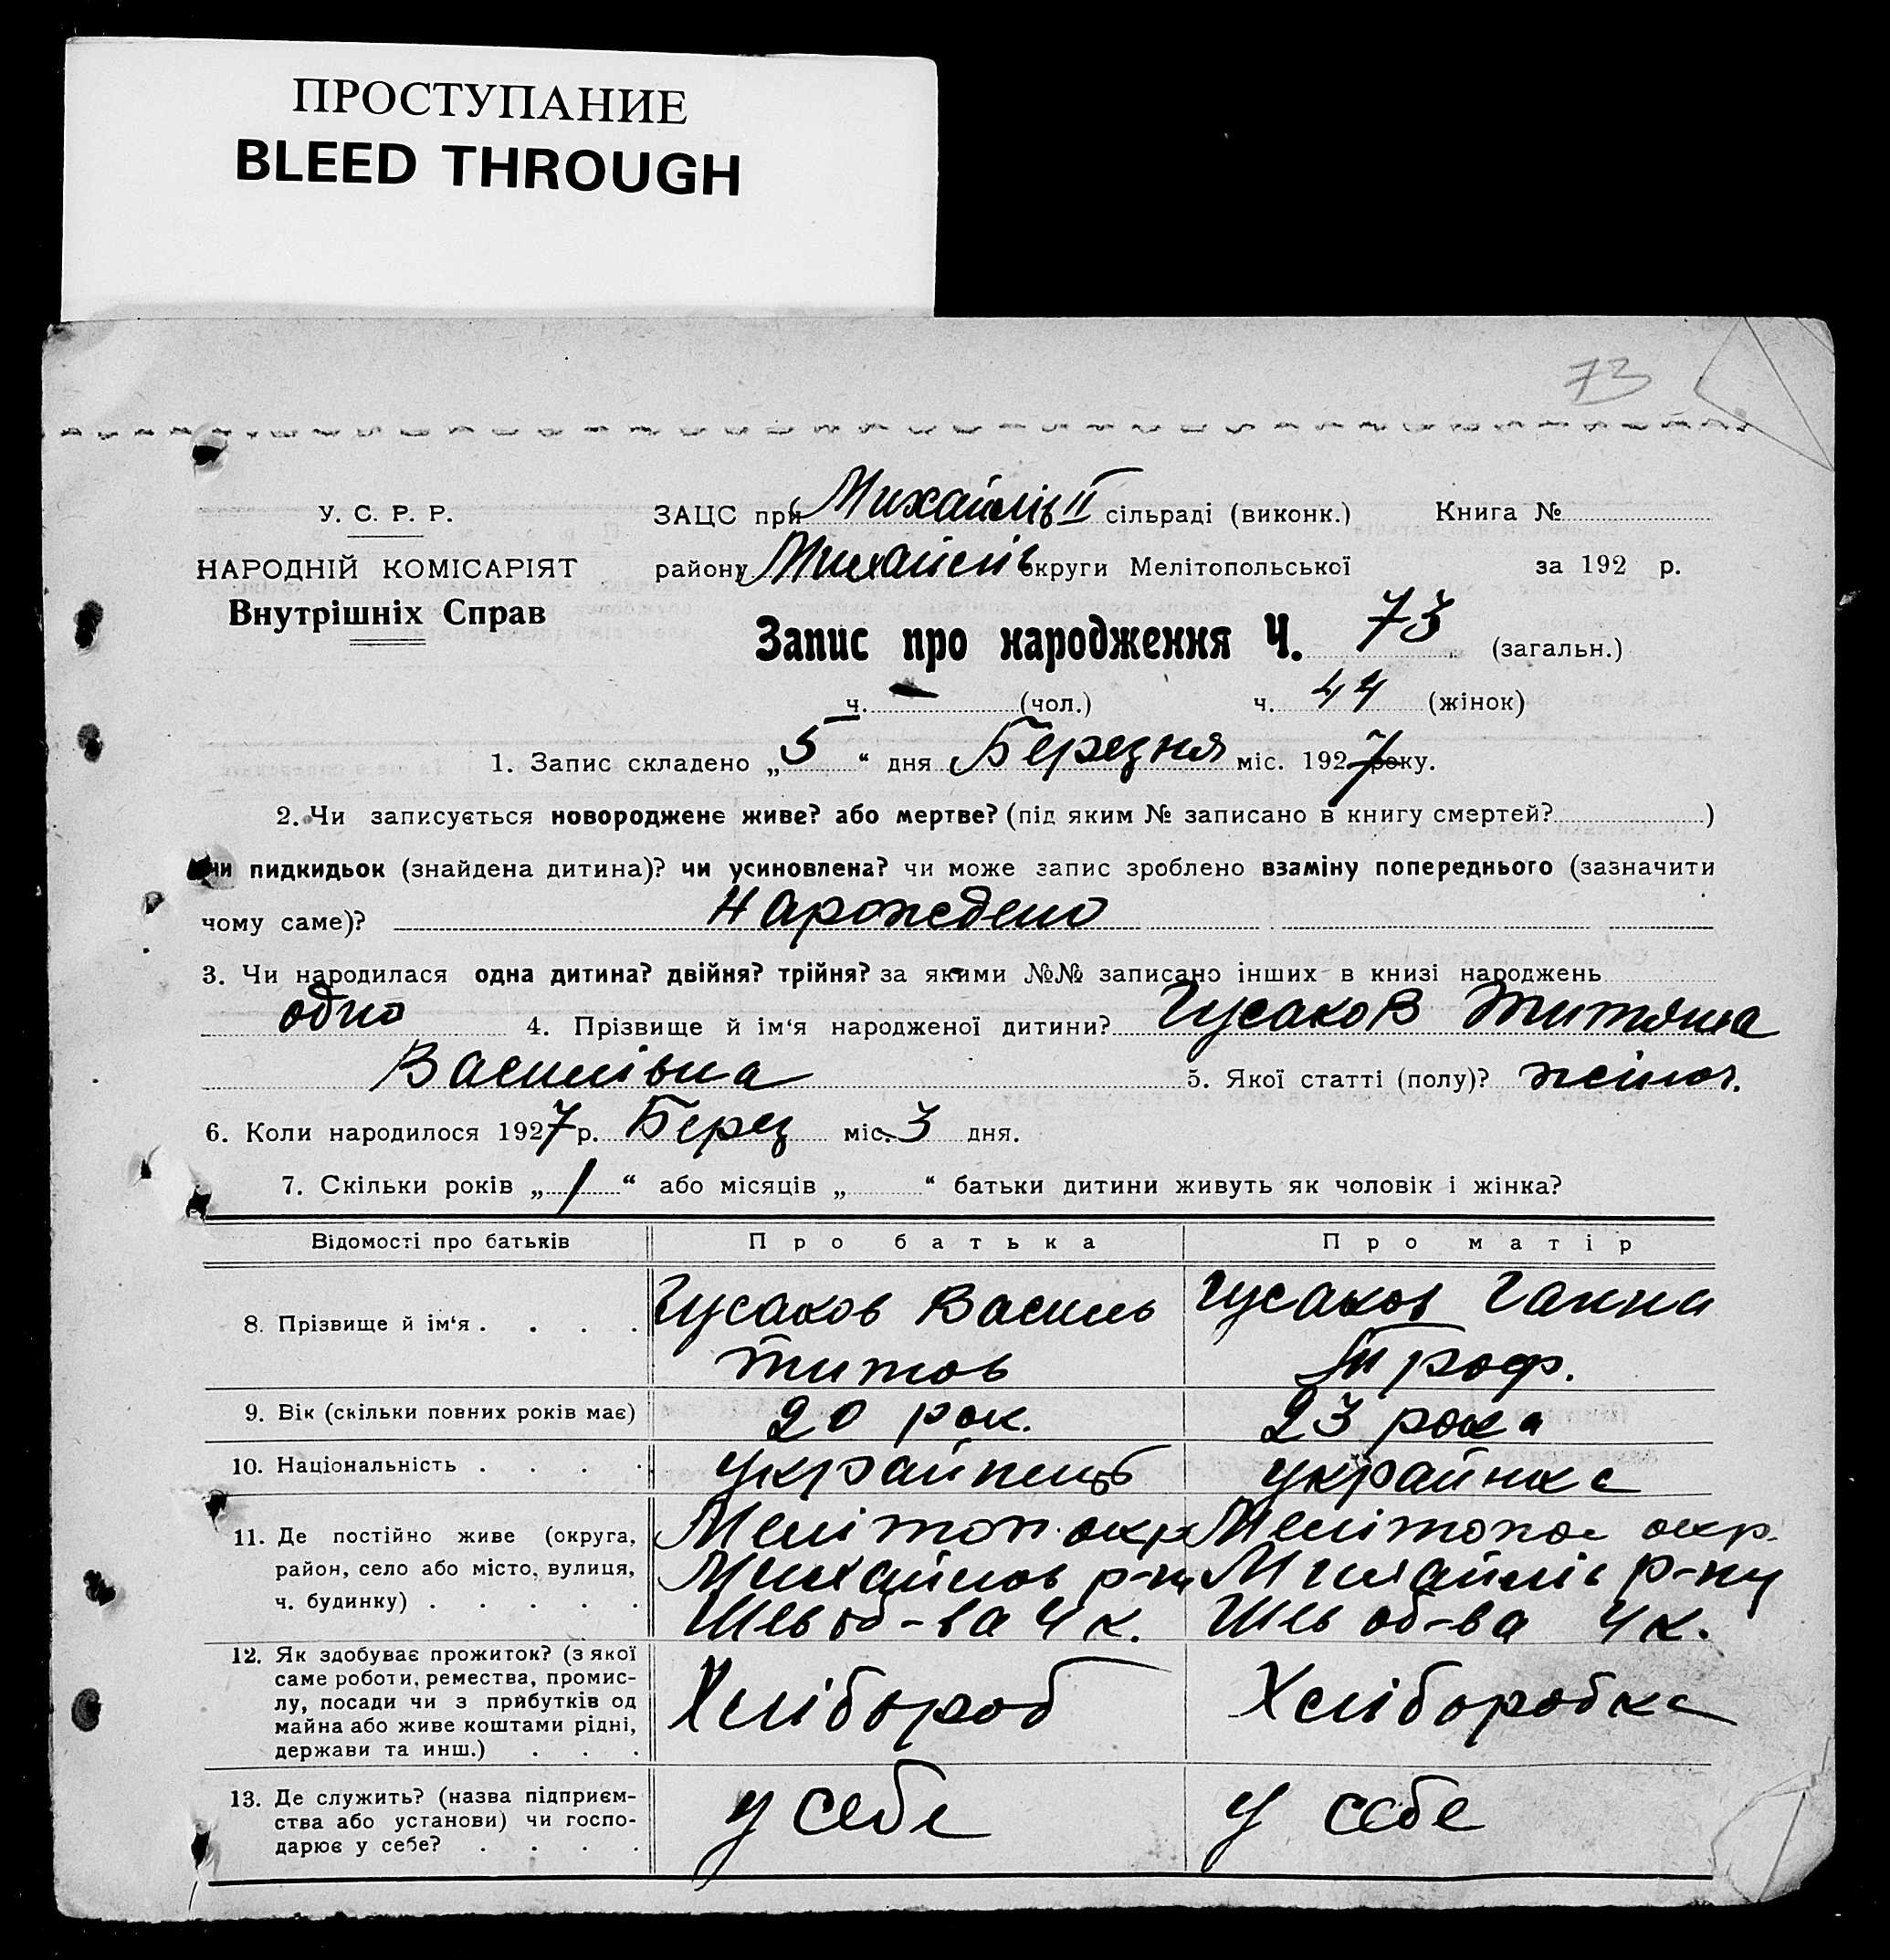 ПРОСТУПАНИЕ
BLEED THROUGH
73
У. С. Р. Р.
ЗАЦС при Михайлів II сільраді (виконк.) Книга №
НАРОДНІЙ КОМІСАРІЯТ
району Михайлів округи Мелітопольської за 192 р.
Внутрішніх Справ
Запис про народження Ч. 73 (загальн.)
ч. — (чол.) ч. 44 (жінок)
1. Запис складено „ 5 “ дня Березня міс. 1927 року.
2. Чи записується новороджене живе? або мертве? (під яким № записано в книгу смертей? )
чи пидкидьок (знайдена дитина)? чи усиновлена? чи може запис зроблено взаміну попереднього (зазначити
чому саме)? Нарождено
3. Чи народилася одна дитина? двійня? трійня? за якими №№ записано інших в книзі народжень
одно 4. Прізвище й ім‘я народженої дитини? Гусаков Титяна
Василівна 5. Якої статті (полу)? жіноч.
6. Коли народилося 1927 р. Берез міс. 3 дня.
7. Скільки років „ 1 “ або місяців „ “ батьки дитини живуть як чоловік і жінка?
Відомості про батьків Про батька Про матір
8. Прізвище й ім‘я . . . . Гусаков Василь Гусаков Ганна
Титов Троф.
9. Вік (скільки повних років має) 20 рок. 23 рока
10. Національність . . . . українець українка
11. Де постійно живе (округа, Мелітоп. окр Мелітопол окр.
район, село або місто, вулиця, Михайлов р-ну Михайлів р-ну
ч. будинку) . . . . . об-ва 4 к. об-ва 4 к.
12. Як здобуває прожиток? (з якої
саме роботи, ремества, промис-
лу, посади чи з прибутків од
майна або живе коштами рідні,
держави та инш.) . . .
Хлібороб Хліборобка
13. Де служить? (назва підприєм-
ства або установи) чи госпо-
дарює у себе? . . . .
у себе у себе